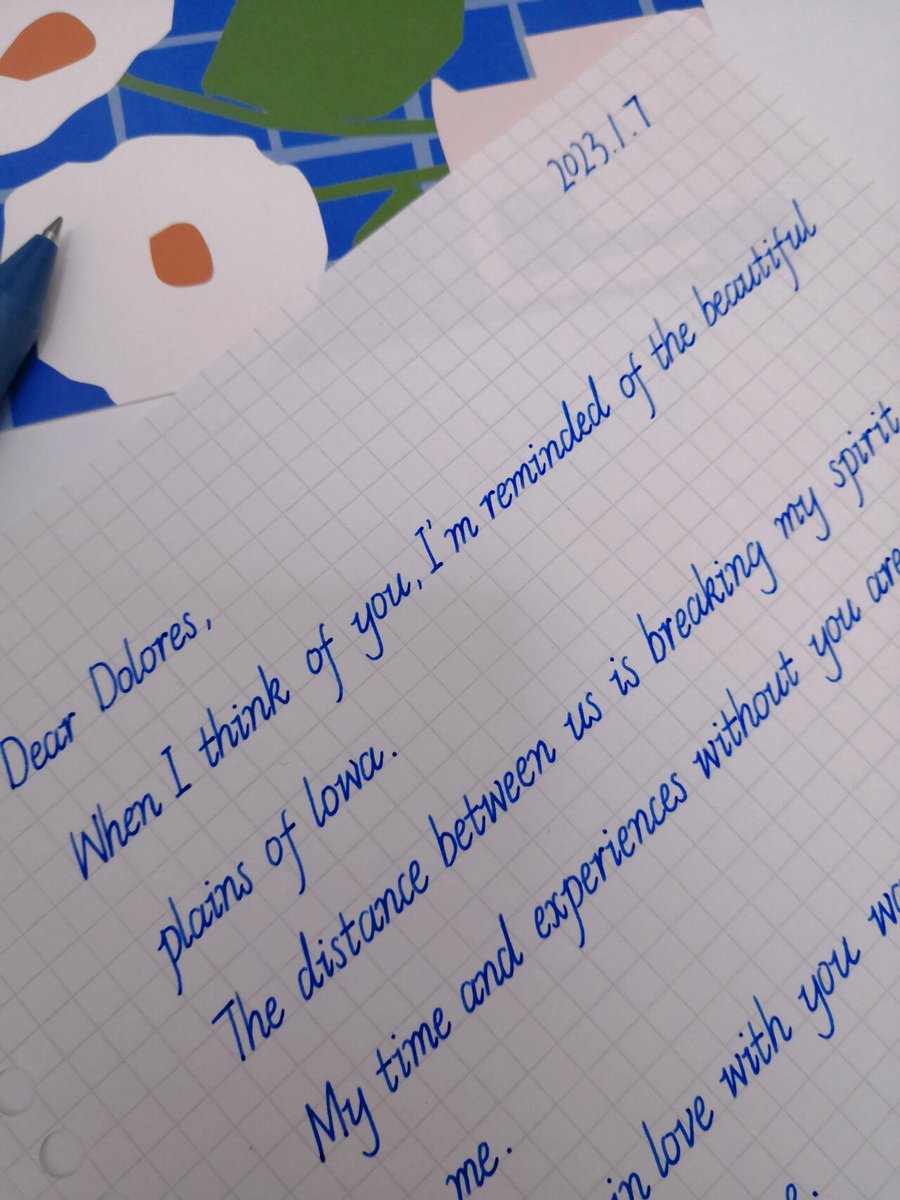 2023.1.7
Dear Dolores,
When I think of you, I'm reminded of the beautiful
plains of Iowa.
The distance between us is breaking my spirit
My time and experiences without you are
me.
in love with you